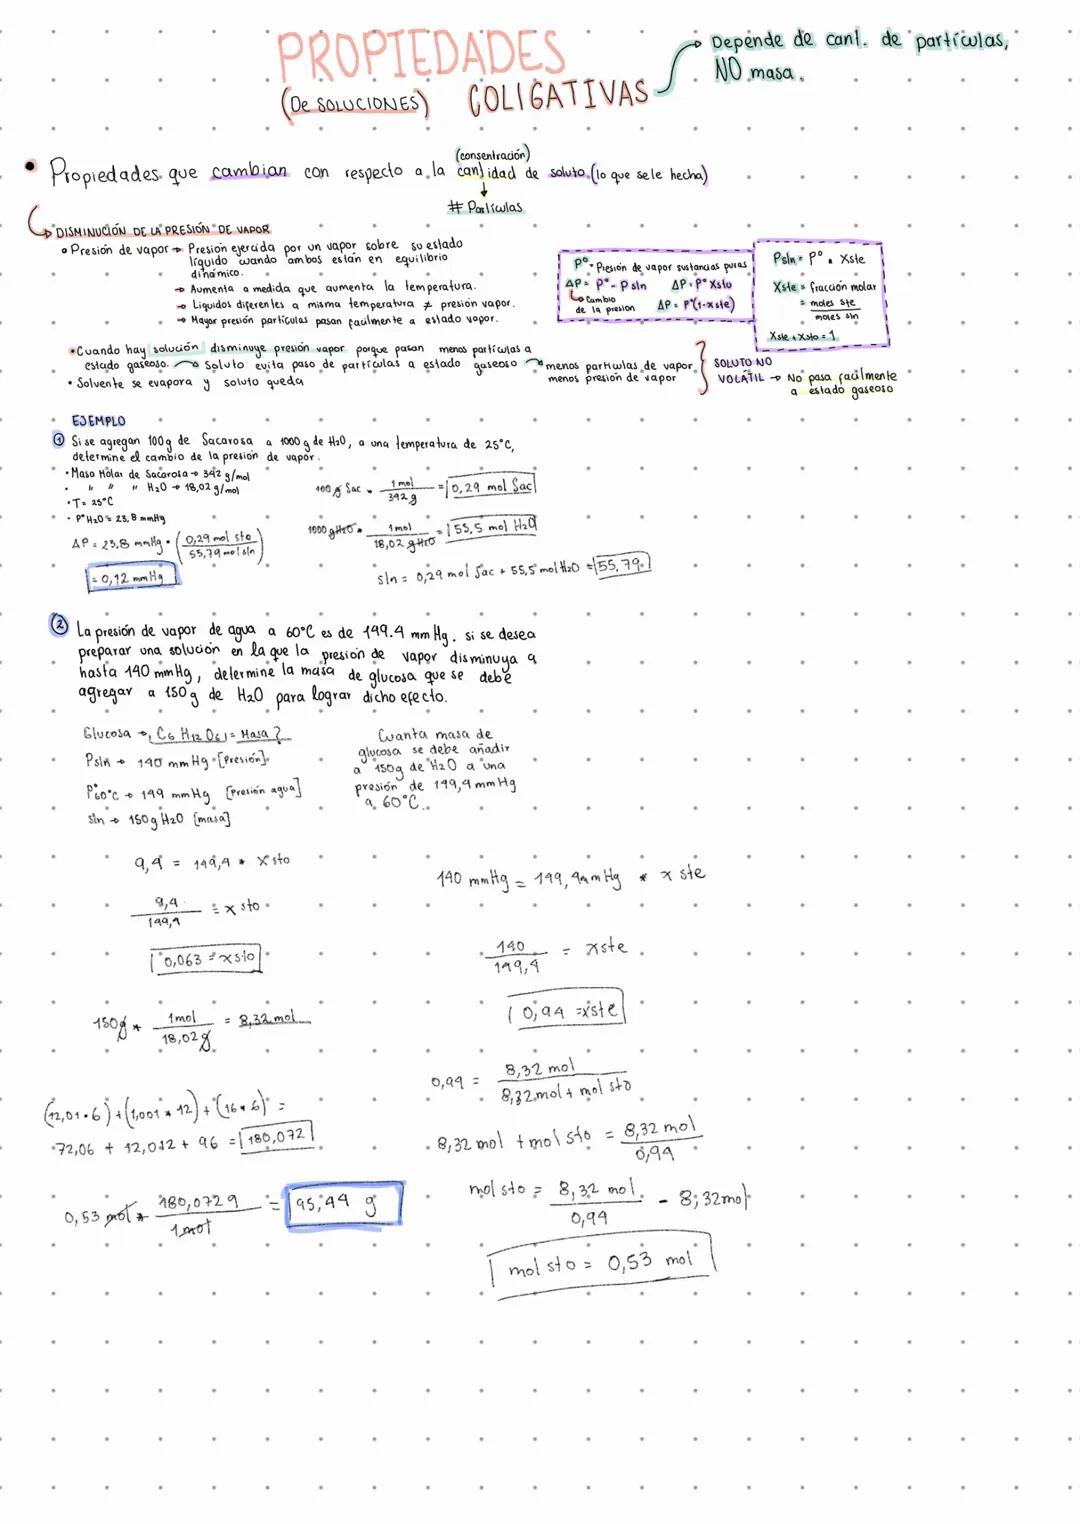 PROPIEDADES
(De SOLUCIONES) COLIGATIVAS
Depende de cant. de partículas,
NO masa.
(consentración)
• Propiedades que cambian con respecto a la cantidad de soluto (lo que se le hecha)
# Partículas
DISMINUCIÓN DE LA PRESIÓN DE VAPOR
• Presión de vapor → Presión ejercida por un vapor sobre su estado
líquido cuando ambos están en equilibrio
dinámico.
→ Aumenta a medida que aumenta la temperatura.
→ Líquidos diferentes a misma temperatura ≠ presión vapor.
→ Mayor presión partículas pasan facilmente a estado vapor.
P° = Presión de vapor sustancias puras
ΔP = P° - P sln ΔP = P° Xsto
Cambio de la presion ΔP = P°(1-xste)
Psln = P° . Xste
Xste = fracción molar
= moles ste
moles sln
Xste + Xsto = 1
• Cuando hay solución disminuye presión vapor porque pasan menos partículas a
estado gaseoso. → Soluto evita paso de partículas a estado gaseoso → menos partículas de vapor
menos presión de vapor
• Solvente se evapora y soluto queda
SOLUTO NO
VOLÁTIL → No pasa facilmente
a estado gaseoso
EJEMPLO
① Si se agregan 100g de Sacarosa a 1000 g de H2O, a una temperatura de 25°C,
determine el cambio de la presión de vapor.
• Masa Molar de Sacarosa → 342 g/mol
• " " " H2O → 18,02 g/mol
• T = 25°C
• P° H2O = 23,8 mmHg
ΔP = 23,8 mmHg • (0,29 mol sto
55,79 mol sln)
= 0,12 mmHg
100 g Sac . 1 mol = 0,29 mol Sac
342 g
1000 g H2O . 1 mol = 55,5 mol H2O
18,02 g H2O
sln = 0,29 mol Sac + 55,5 mol H2O = 55,79
② La presión de vapor de agua a 60°C es de 149.4 mm Hg. si se desea
preparar una solución en la que la presión de vapor disminuya a
hasta 140 mmHg, determine la masa de glucosa que se debe
agregar a 150g de H2O para lograr dicho efecto.
Glucosa → C6 H12 O6 = Masa?
Psln → 140 mm Hg [Presión]
P°60°C → 149 mmHg [Presión agua]
sln → 150g H2O [masa]
Cuanta masa de
glucosa se debe añadir
a 150g de H2O a una
presión de 149,4 mm Hg
a 60°C.
9,4 = 149,4 * X sto
9,4 = x sto
149,4
0,063 = x sto
150g * 1mol = 8,32 mol
18,02 g
(12,01 • 6) + (1,001 * 12) + (16 * 6) =
72,06 + 12,012 + 96 = 180,072
0,53 mol * 180,072 g = 95,44 g
1 mol
140 mmHg = 149,4 mm Hg * x ste
140 = xste
149,4
0,94 = xste
0,94 = 8,32 mol
8,32 mol + mol sto
8,32 mol + mol sto = 8,32 mol
0,94
mol sto = 8,32 mol - 8,32 mol
0,94
mol sto = 0,53 mol